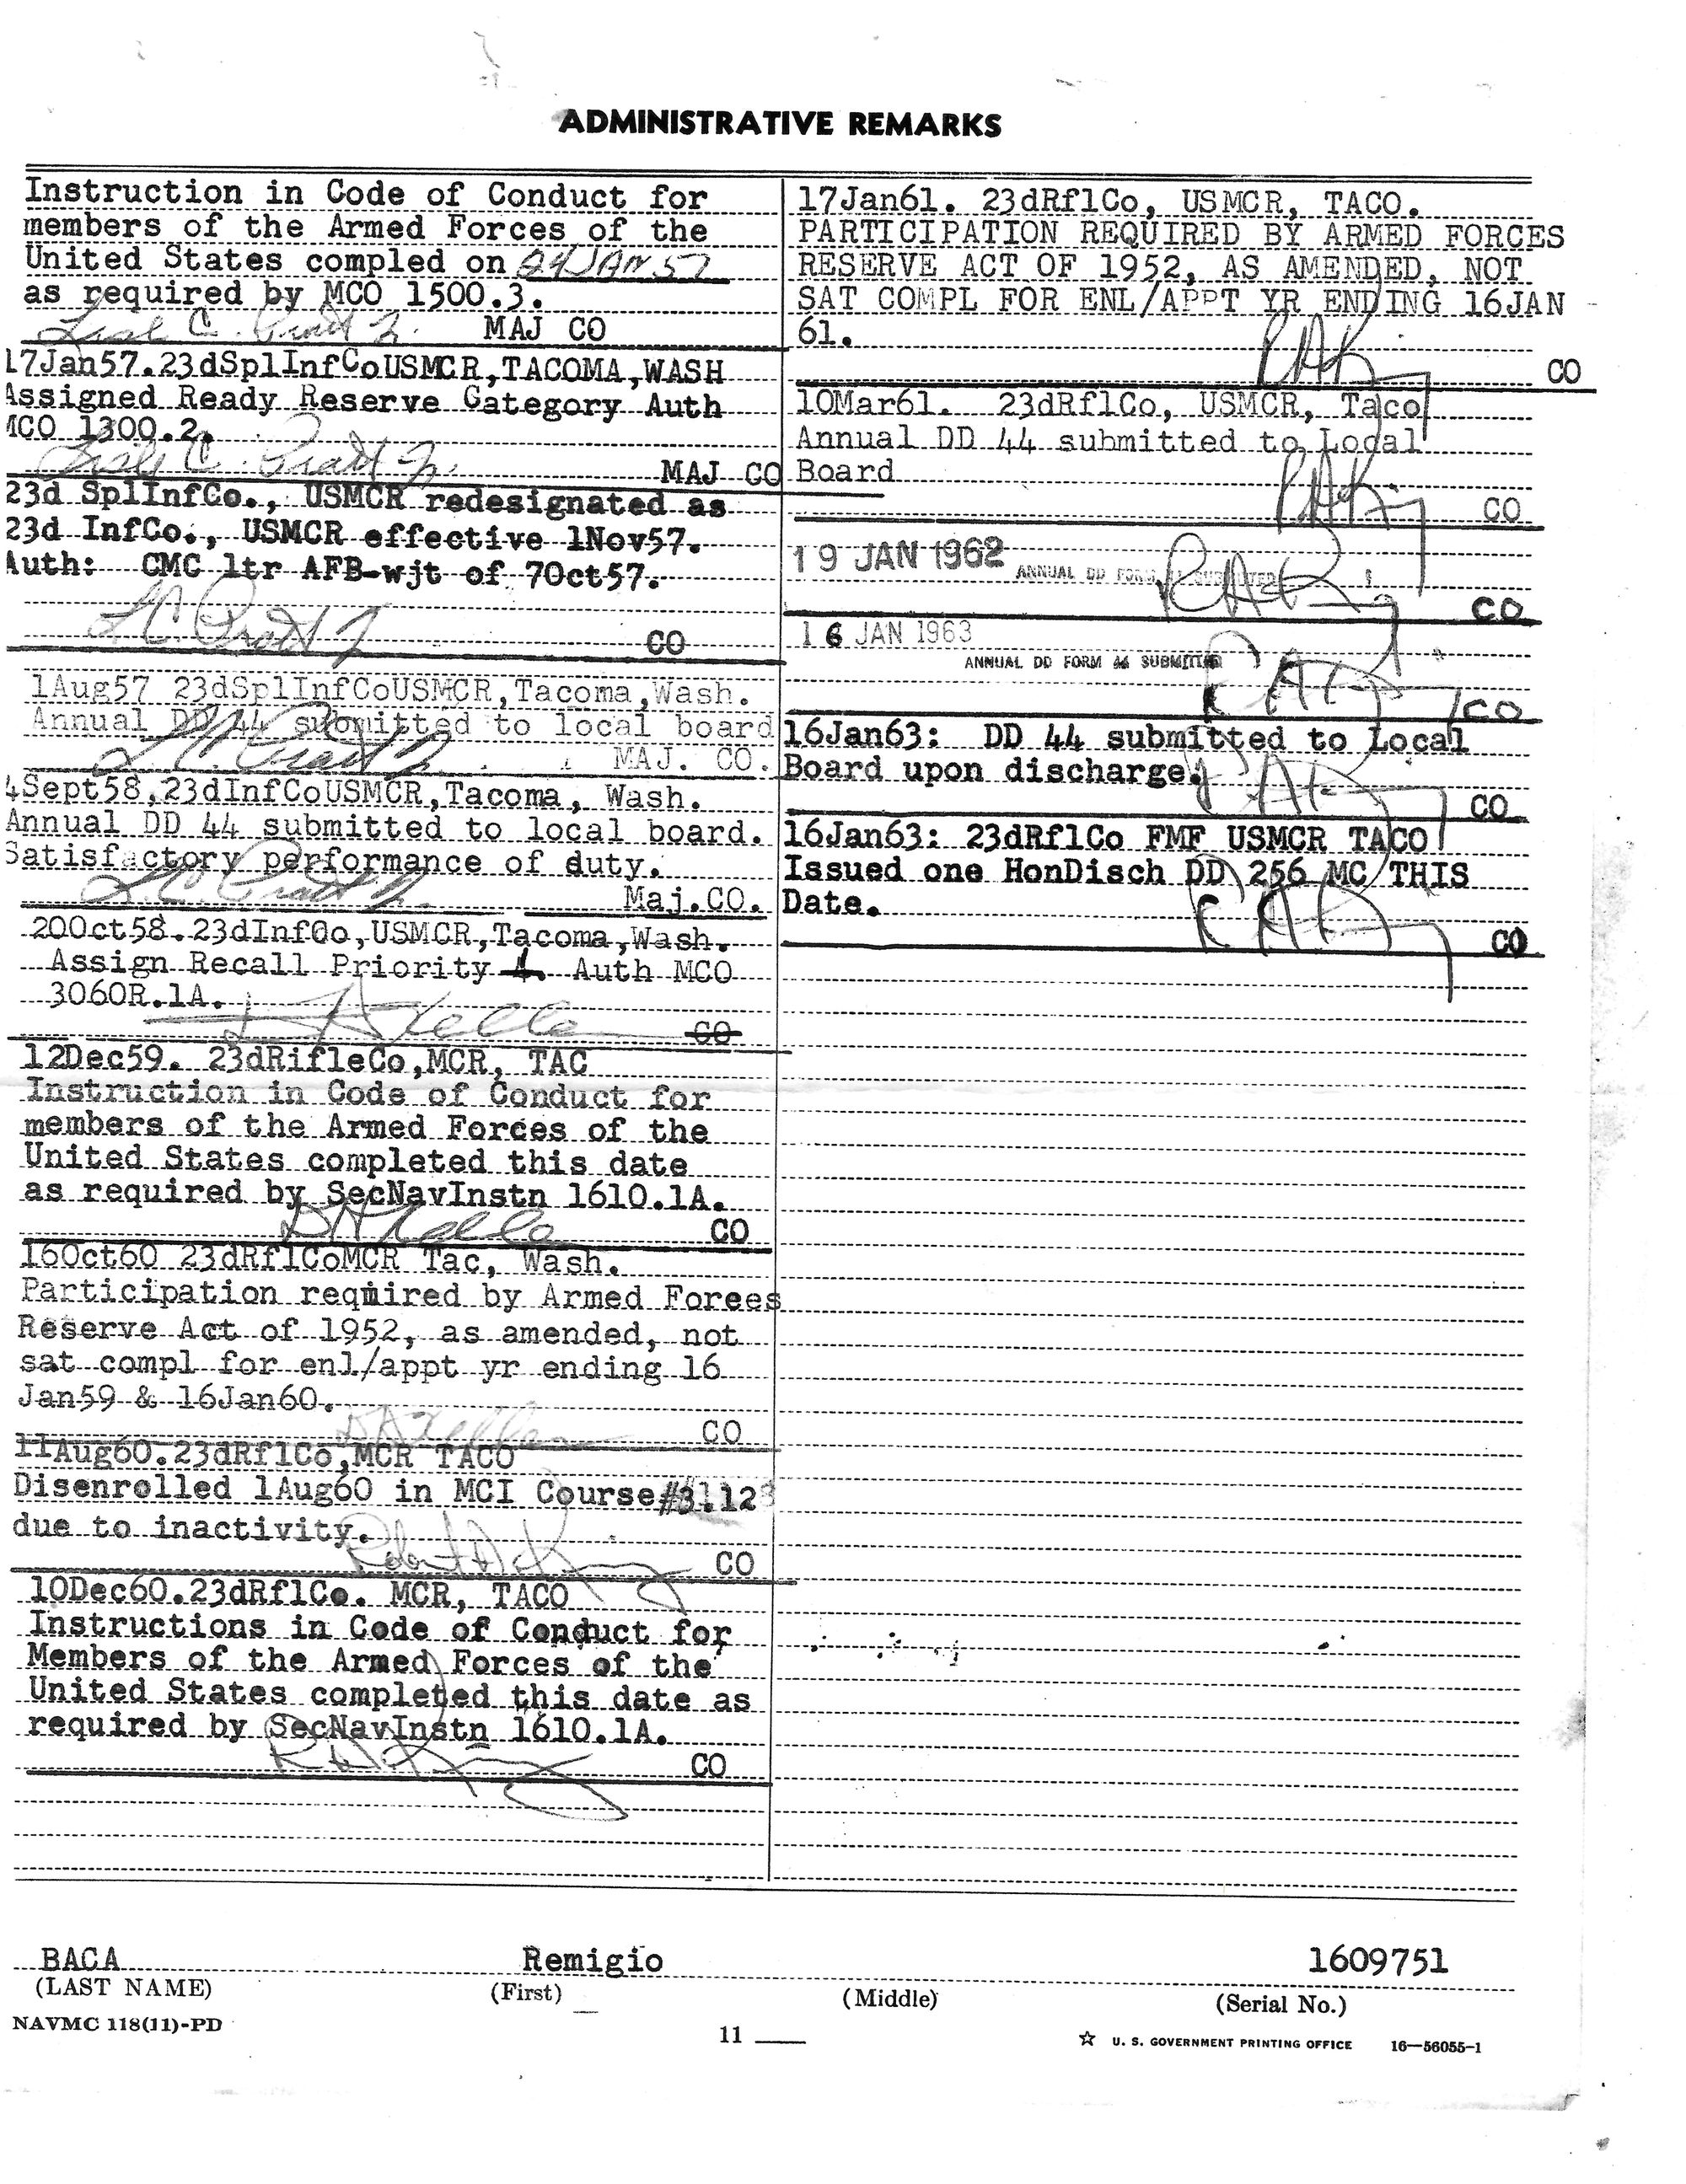 ADMINISTRATIVE REMARKS
Instruction in Code of Conduct for
members of the Armed Forces of the
United States compled on 24 JAN 57
as required by MCO 1500.3.
MAJ CO
17Jan57.23dSplInfCoUSMCR,TACOMA,WASH
Assigned Ready Reserve Category Auth
MCO 1300.2.
MAJ CO
23d SplInfCo., USMCR redesignated as
23d InfCo., USMCR effective 1Nov57.
Auth: CMC ltr AFB-wjt of 7Oct57.
CO
1Aug57 23dSplInfCoUSMCR,Tacoma,Wash.
Annual DD 44 submitted to local board
MAJ. CO.
4Sept58,23dInfCoUSMCR,Tacoma, Wash.
Annual DD 44 submitted to local board.
Satisfactory performance of duty.
Maj.CO.
20Oct58.23dInfCo,USMCR,Tacoma,Wash.
Assign Recall Priority 4 Auth MCO
3060R.1A.
CO
12Dec59. 23dRifleCo,MCR, TAC
Instruction in Code of Conduct for
members of the Armed Forces of the
United States completed this date
as required by SecNavInstn 1610.1A.
CO
16Oct60 23dRflCoMCR Tac, Wash.
Participation required by Armed Forees
Reserve Act of 1952, as amended, not
sat compl for enl/appt yr ending 16
Jan59 & 16Jan60.
CO
11Aug60.23dRflCo,MCR TACO
Disenrolled 1Aug60 in MCI Course
due to inactivity.
CO
10Dec60.23dRflCo. MCR, TACO
Instructions in Code of Conduct for
Members of the Armed Forces of the
United States completed this date as
required by SecNavInstn 1610.1A.
CO
17Jan61. 23dRflCo, USMCR, TACO.
PARTICIPATION REQUIRED BY ARMED FORCES
RESERVE ACT OF 1952, AS AMENDED, NOT
SAT COMPL FOR ENL/APPT YR ENDING 16JAN
61.
CO
10Mar61. 23dRflCo, USMCR, Taco
Annual DD 44 submitted to Local
Board
CO
19 JAN 1962 ANNUAL DD FORM 44 SUBMITTED
CO
16 JAN 1963
ANNUAL DD FORM 44 SUBMITTED
CO
16Jan63: DD 44 submitted to Local
Board upon discharge.
CO
16Jan63: 23dRflCo FMF USMCR TACO
Issued one HonDisch DD 256 MC THIS
Date.
CO
BACA Remigio 1609751
(LAST NAME) (First) (Middle) (Serial No.)
NAVMC 118(11)-PD
11
☆ U. S. GOVERNMENT PRINTING OFFICE 16—56055-1